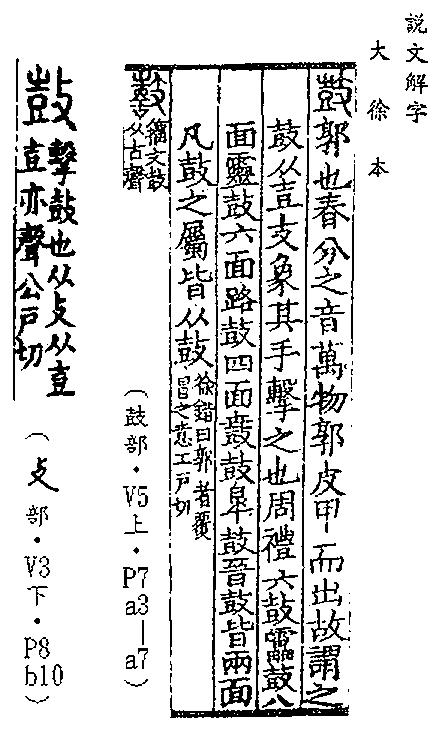 説文解字
大徐本
鼓郭也春分之音萬物郭皮甲而出故謂之
鼓从壴支象其手擊之也周禮六鼓靁鼓八
面靈鼓六面路鼓四面鼖鼓臯鼓晉鼓皆兩面
凡鼓之屬皆从鼓徐鍇曰郭者覆
冒之意工戶切
籒文鼓
从古聲
（鼓部．V5上．P7a3—a7）
擊鼓也从攴从壴
壴亦聲公戶切
（攴部．V3下．P8b10）